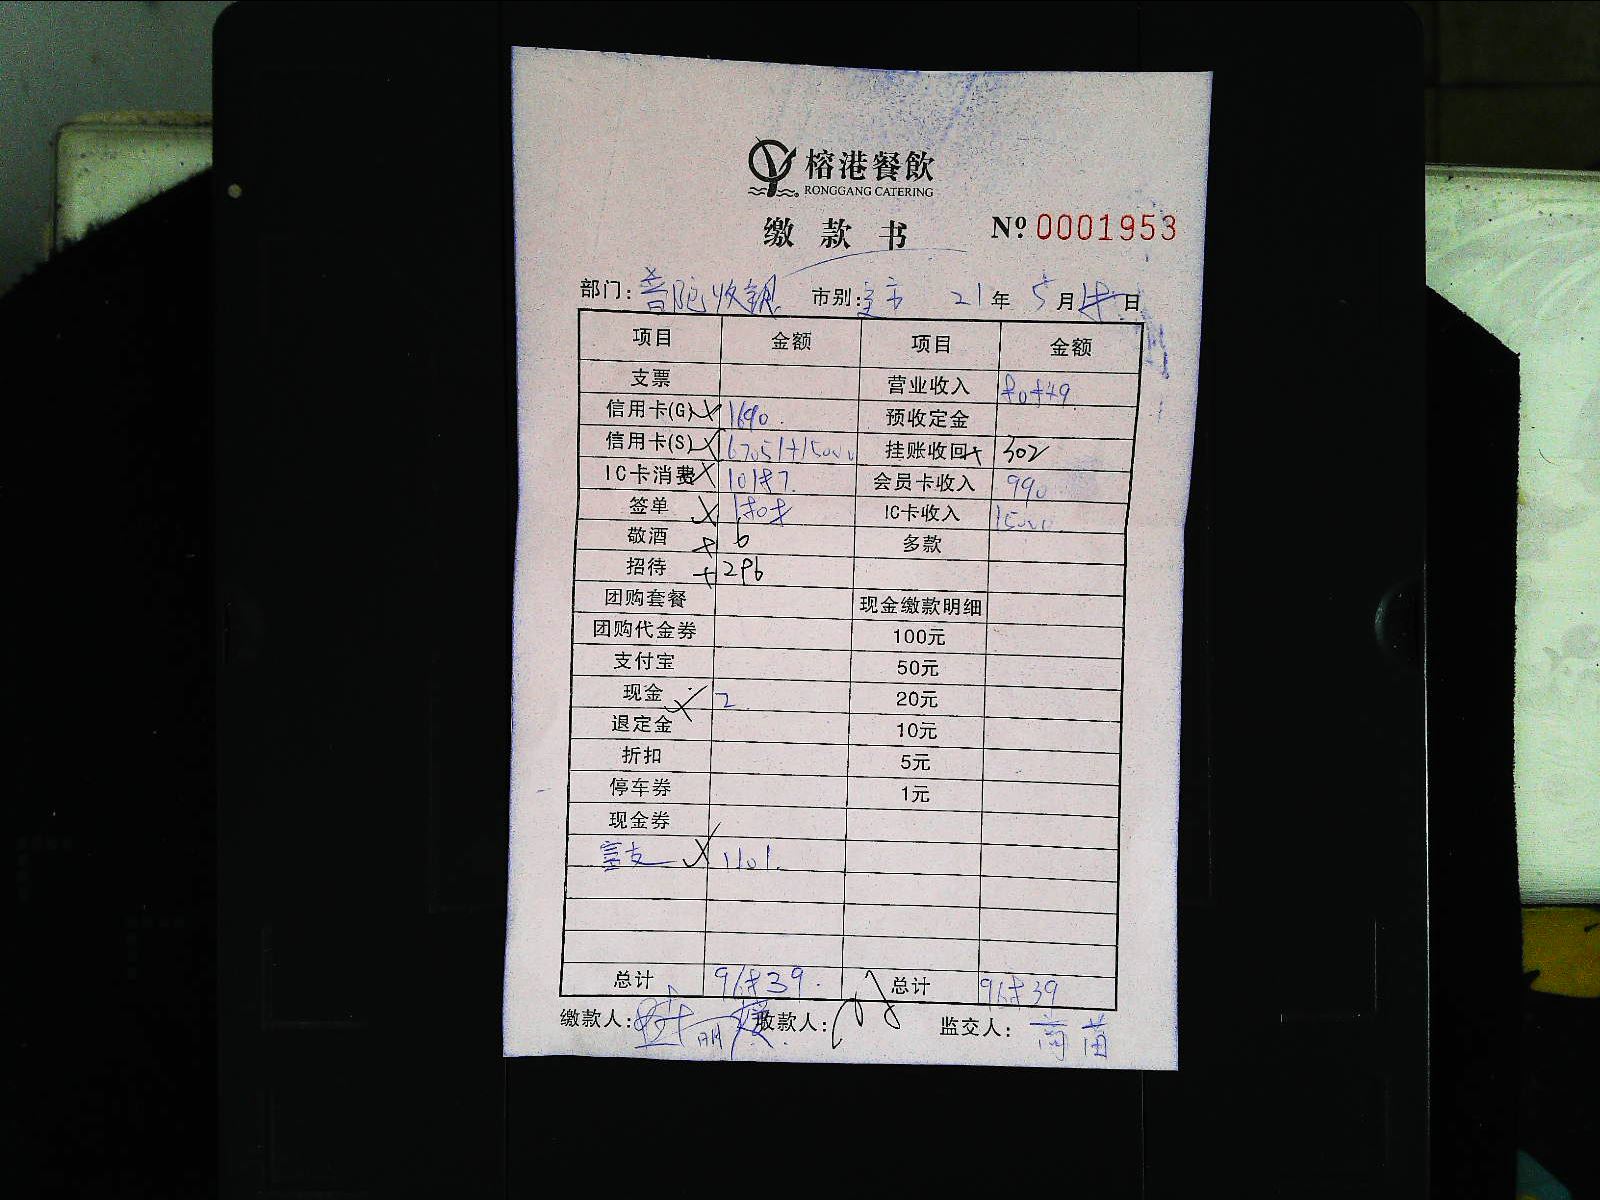 榕港餐飲
RONGGANG CATERING
缴款书 Nº 0001953
部门: 普陀收银 市别: 全市 21年 5月 18日
项目 金额 项目 金额
支票 营业收入 80849
信用卡(G) 1690. 预收定金
信用卡(S) 67051+15000 挂账收回 302
IC卡消费 10187. 会员卡收入 990
签单 1808 IC卡收入 15000
敬酒 6 多款
招待 296
团购套餐 现金缴款明细
团购代金券 100元
支付宝 50元
现金 2. 20元
退定金 10元
折扣 5元
停车券 1元
现金券
富友 1101.
总计 96839. 总计 96839
缴款人: 收款人: 监交人: